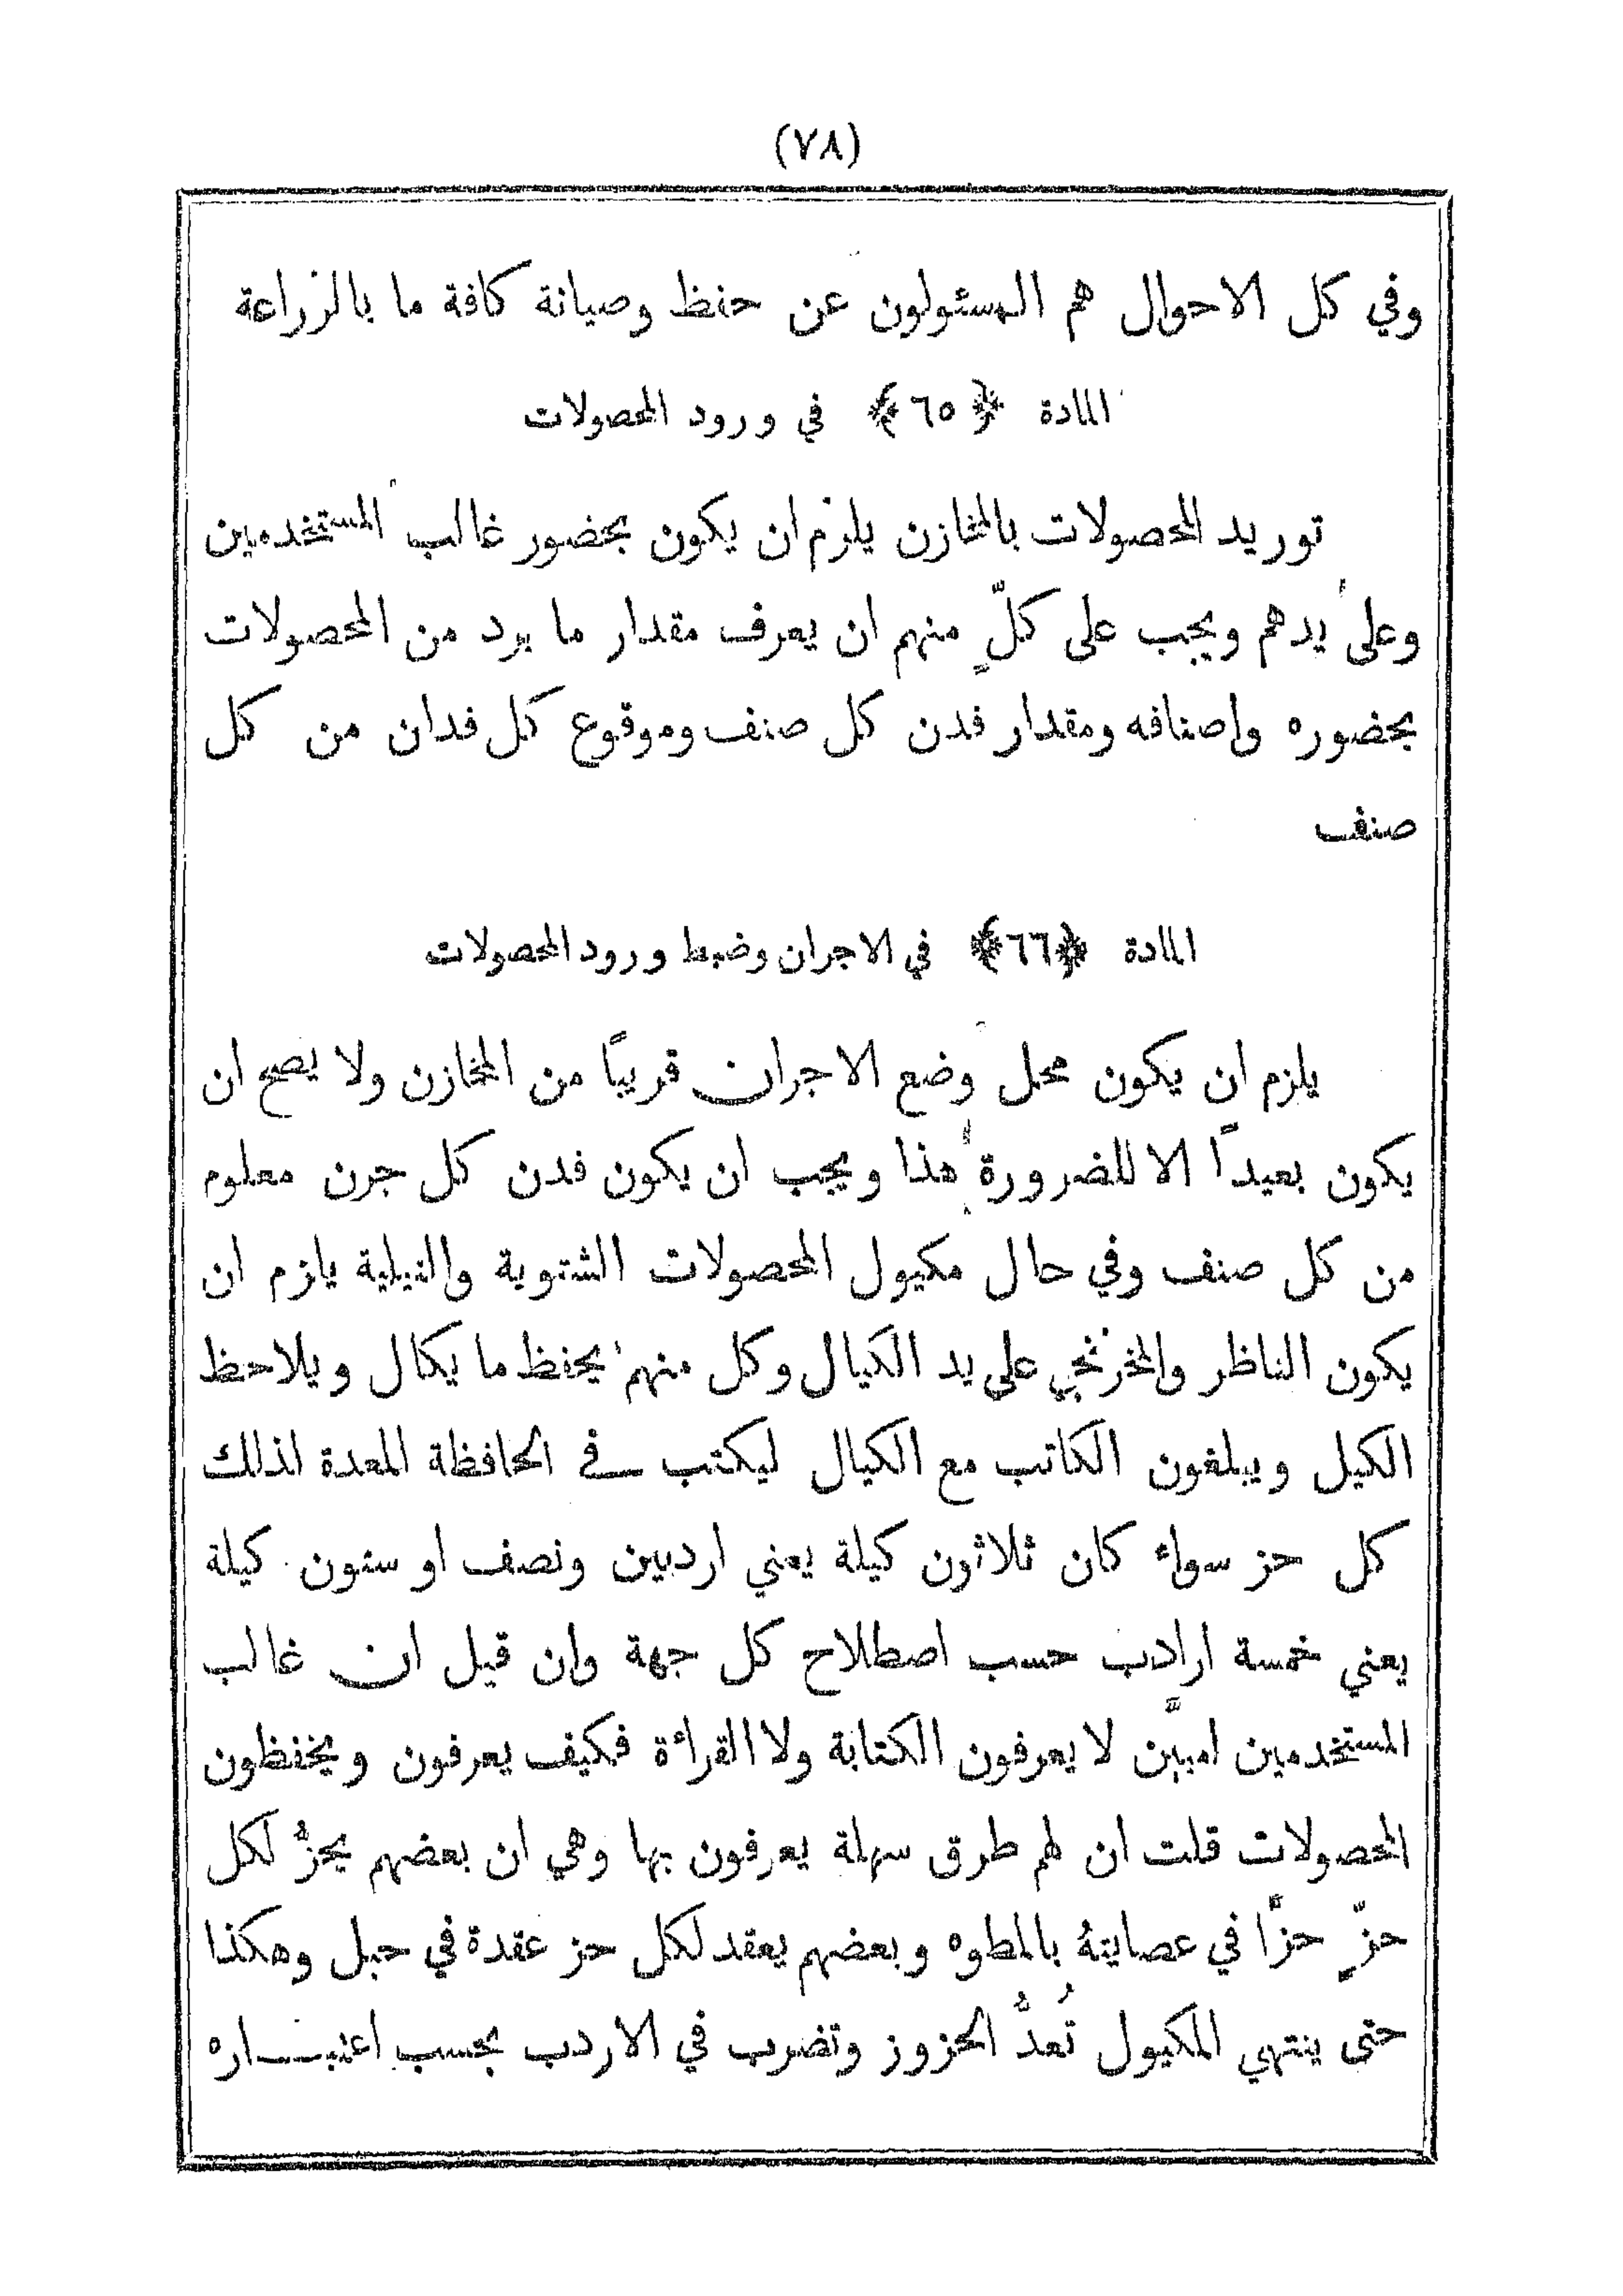 (٧٨)
وفي كل الاحوال هم المسئولون عن حفظ وصيانة كافة ما بالزراعة
المادة ﴿٦٥﴾ في ورود المحصولات
توريد المحصولات بالمخازن يلزم ان يكون بحضور غالب المستخدمين
وعلى يدهم ويجب على كلٍّ منهم ان يعرف مقدار ما يرد من المحصولات
بحضوره واصنافه ومقدار فدن كل صنف وموقوع كل فدان من كل
صنف
المادة ﴿٦٦﴾ في الاجران وضبط ورود المحصولات
يلزم ان يكون محل وضع الاجران قريبًا من المخازن ولا يصح ان
يكون بعيدًا الا للضرورة هذا ويجب ان يكون فدن كل جرن معلوم
من كل صنف وفي حال مكيول المحصولات الشتوية والنيلية يلزم ان
يكون الناظر والمخزنجي على يد الكيال وكل منهم يحفظ ما يكال ويلاحظ
الكيل ويبلغون الكاتب مع الكيال ليكتب في الحافظة المعدة لذلك
كل حز سواء كان ثلاثون كيلة يعني اردبين ونصف او ستون كيلة
يعني خمسة ارادب حسب اصطلاح كل جهة وان قيل ان غالب
المستخدمين اميين لا يعرفون الكتابة ولا القراءة فكيف يعرفون ويحفظون
المحصولات قلت ان لهم طرق سهلة يعرفون بها وهي ان بعضهم يحزُّ لكل
حزٍّ حزًّا في عصايتهُ بالمطوه وبعضهم يعقد لكل حز عقدة في حبل وهكذا
حتى ينتهي المكيول تُعدُّ الحزوز وتضرب في الاردب بحسب اعتبـــاره